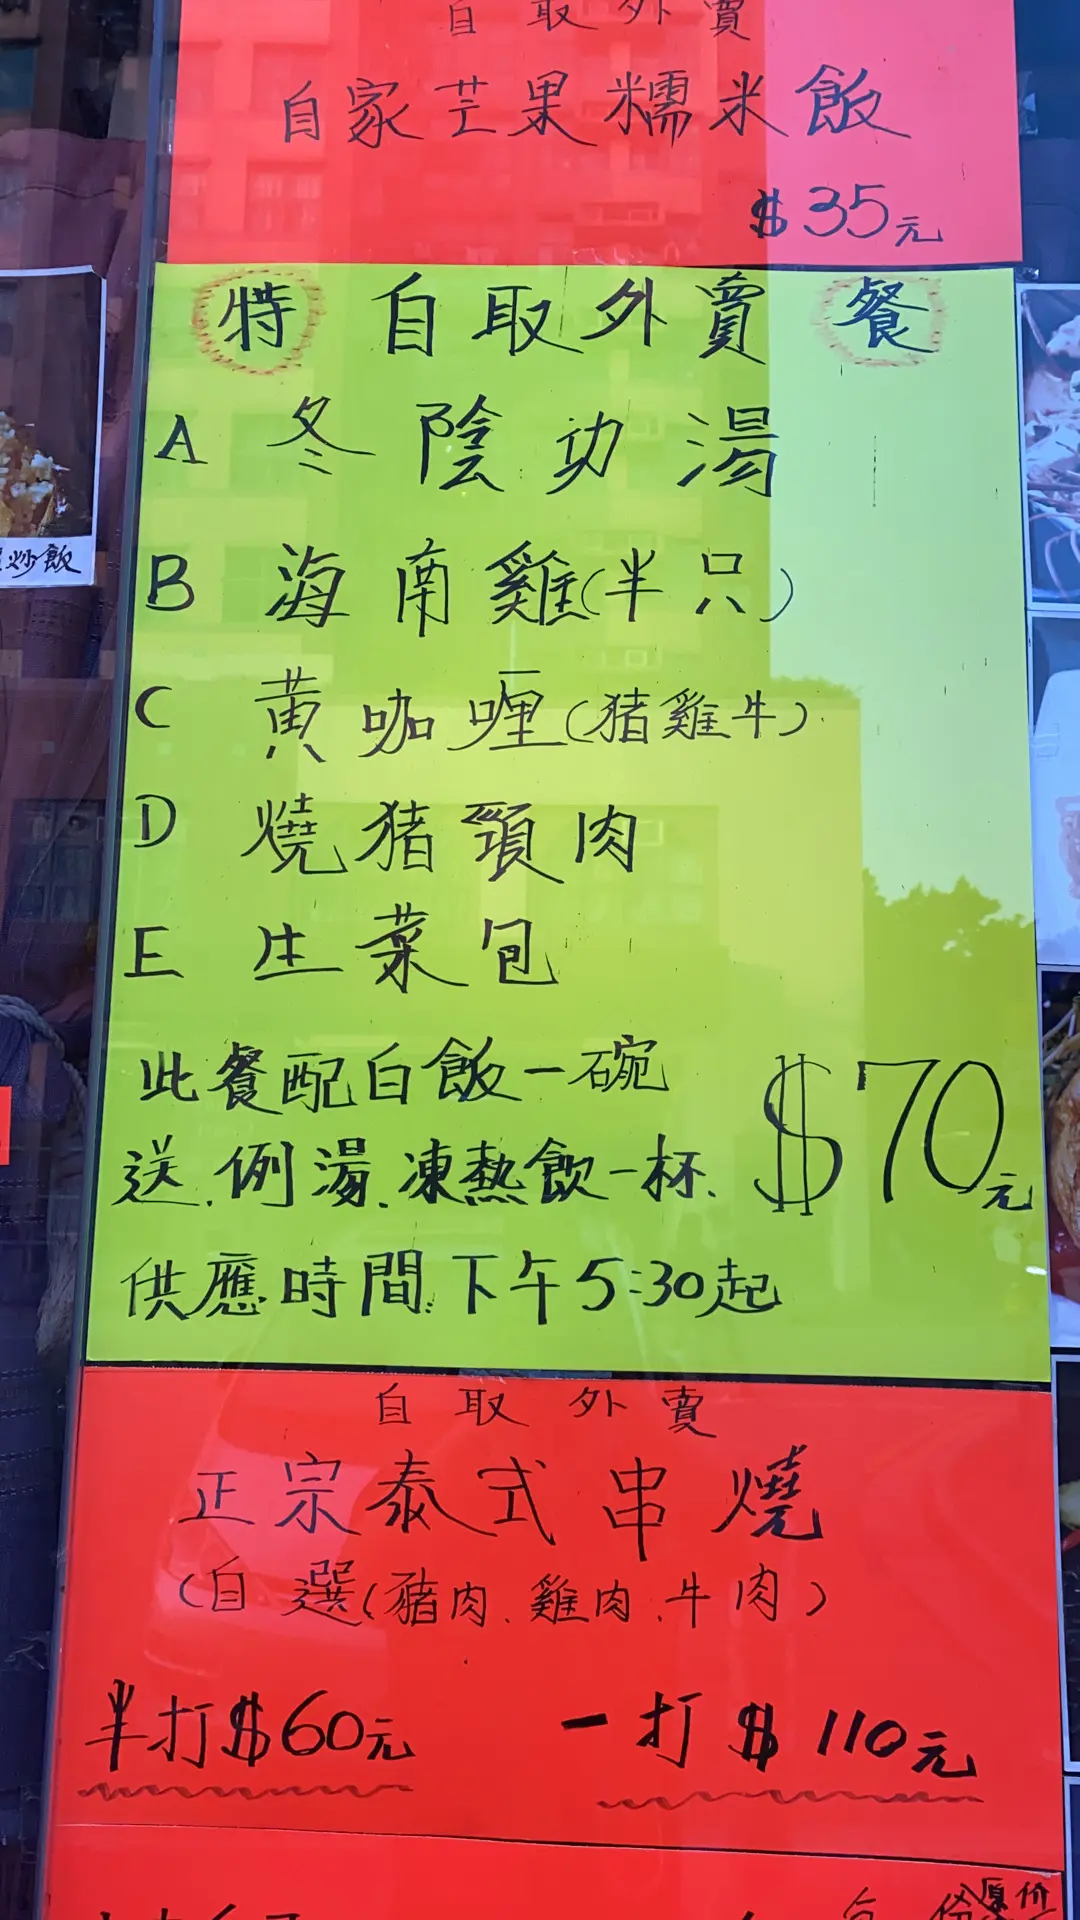 自取外賣
自家芒果糯米飯
$35元
特 自取外賣 餐
A 冬陰功湯
B 海南雞(半只)
C 黄咖喱(猪雞牛)
D 燒猪頸肉
E 生菜包
此餐配白飯一碗
送.例湯.凍熱飲一杯.
$70元
供應時間:下午5:30起
炒飯
自取外賣
正宗泰式串燒
(自選(豬肉.雞肉.牛肉)
半打$60元 一打$110元
原价